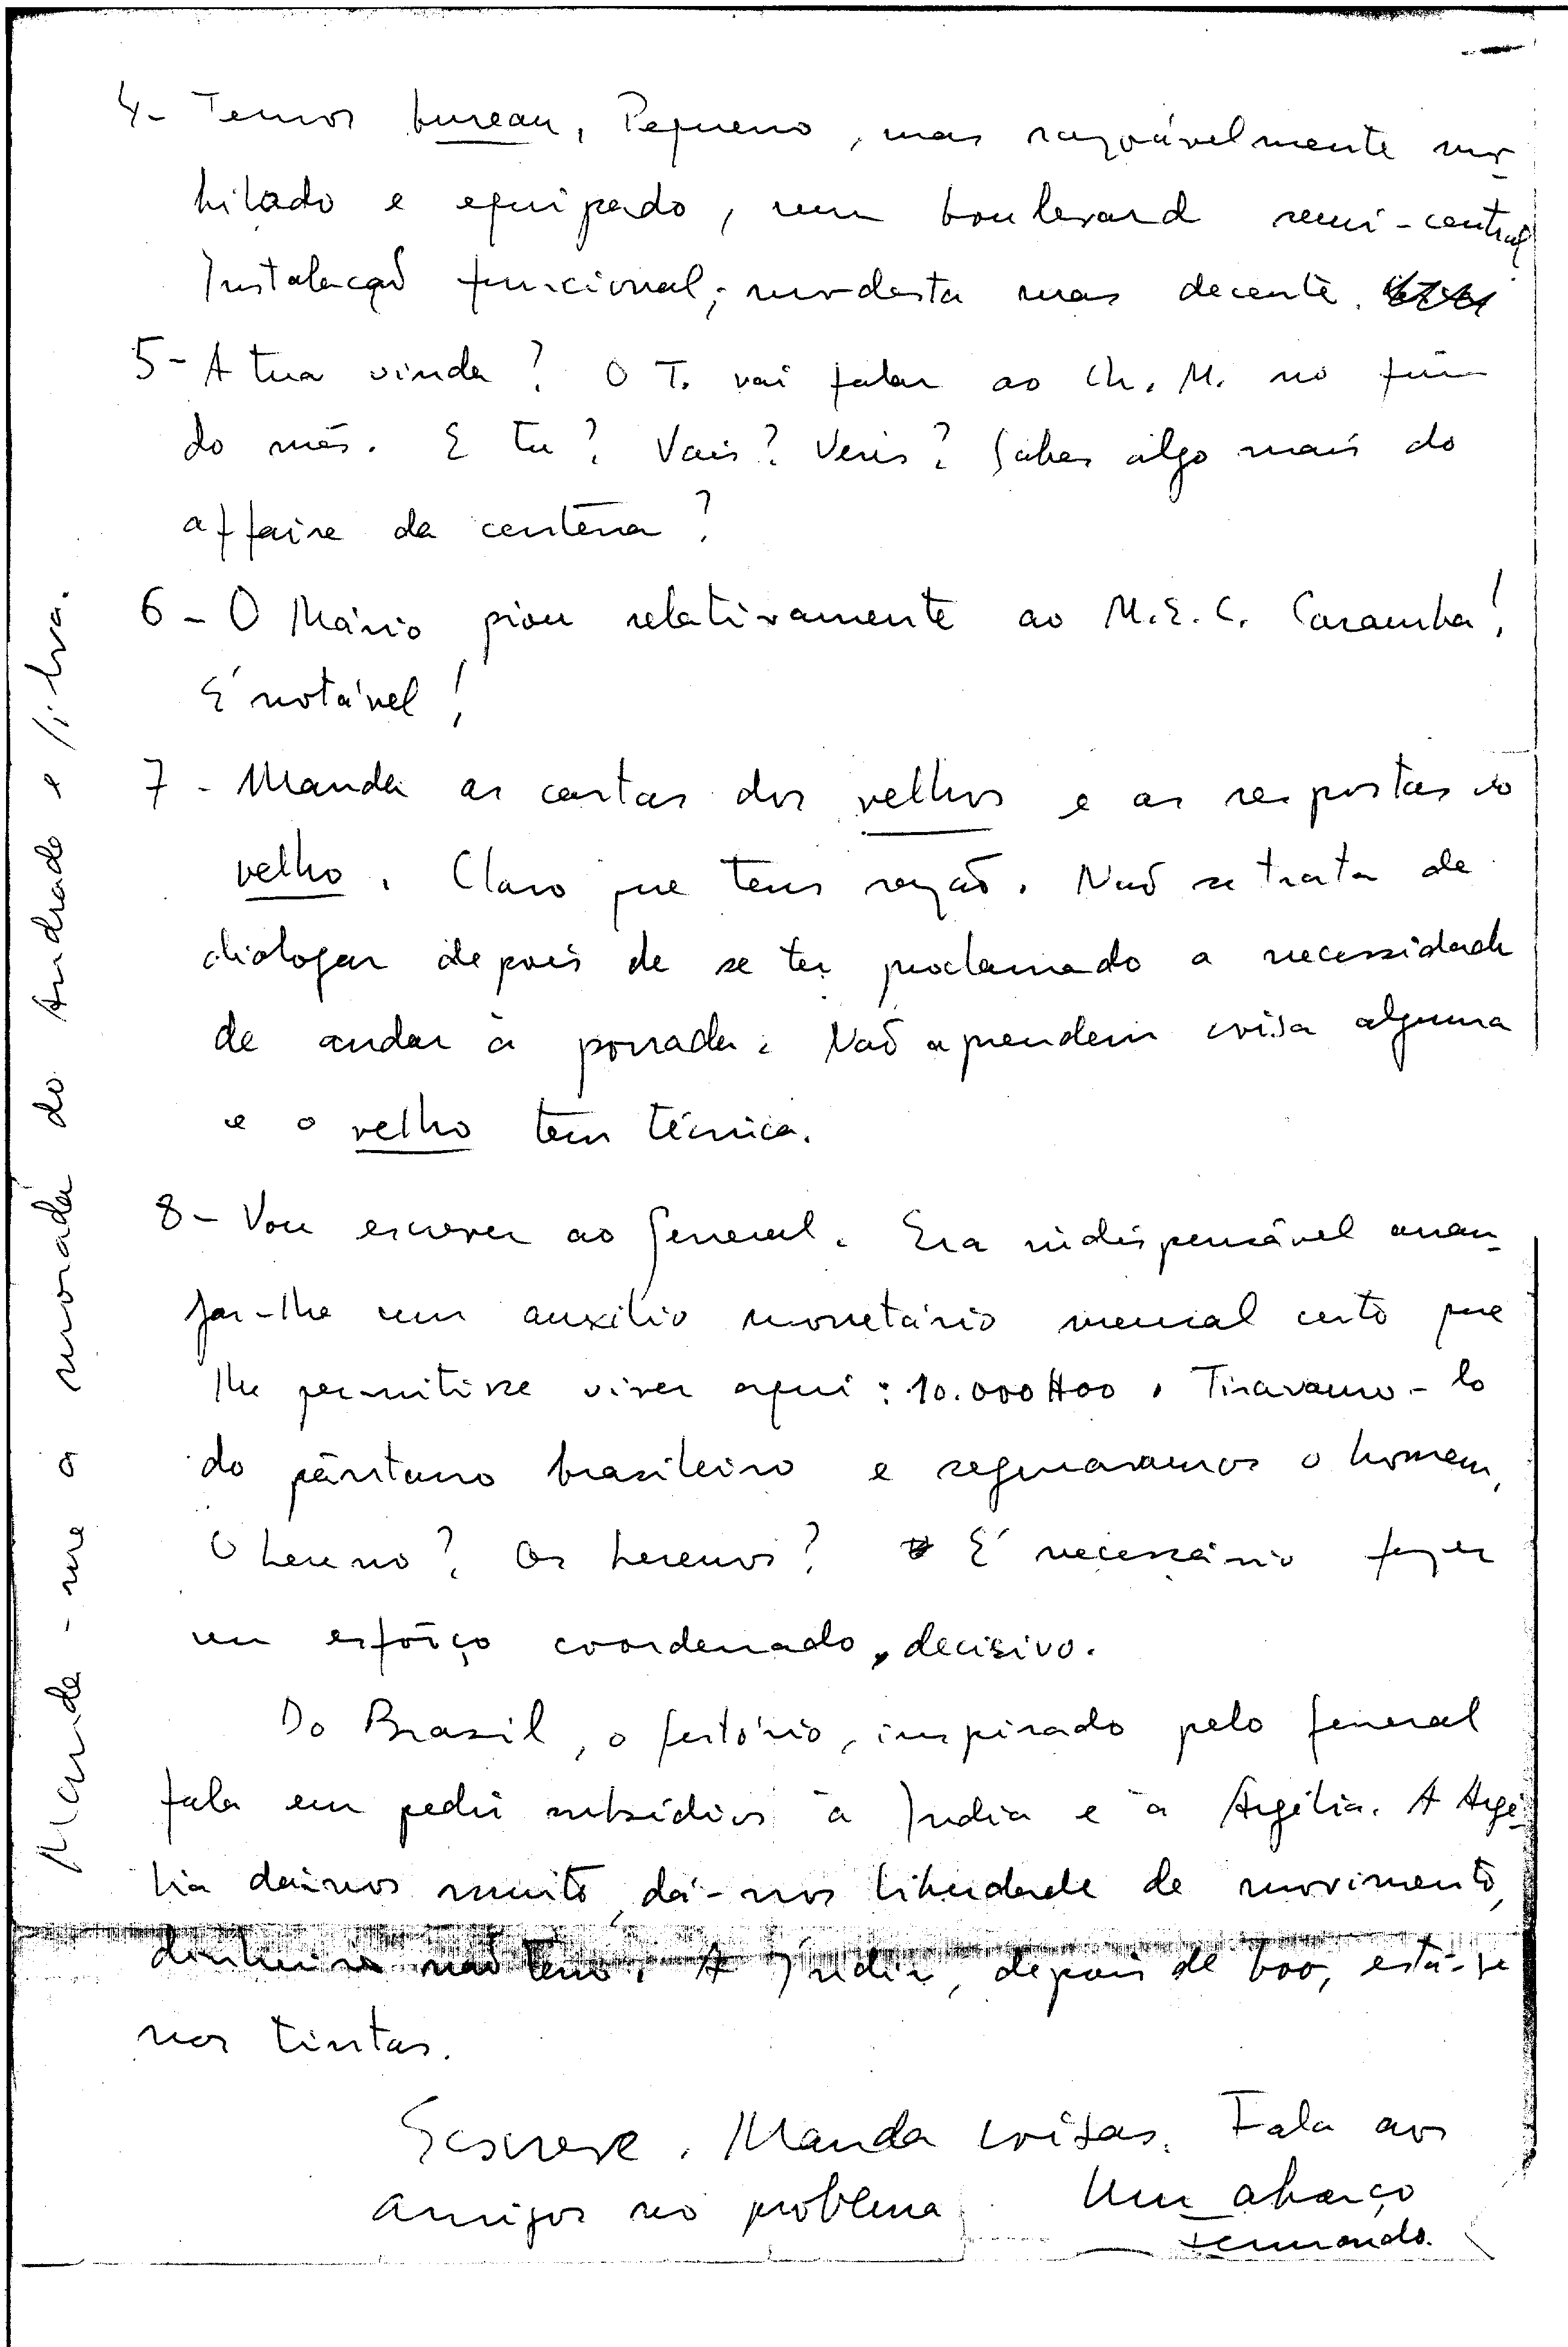 4- Temos bureau, Pequeno, mas razoávelmente mo-
bilado e equipado, num boulevard semi-central
Instalação funcional; modesta mas decente.
5- A tua vinda? O T. vai falar ao Ch. M. no fim
do mês. E tu? Vais? Vens? Sabes algo mais do
affaire da centena?
6- O Mário piou relativamente ao M.E.C. Caramba!
É notável!
7- Manda as cartas dos velhos e as respostas do
velho. Claro que tens razão. Não se trata de
dialogar depois de se ter proclamado a necessidade
de andar à porrada. Não aprendem coisa alguma
e o velho tem técnica.
8- Vou escrever ao general. Era indispensável arran-
jar-lhe um auxílio monetário mensal certo que
lhe permitisse viver aqui: 10.000$00. Tiravamo-lo
do pântano brasileiro e seguravamos o homem.
O hereno? Os herenos? É necessário fazer
um esfôrço coordenado, decisivo.
Do Brasil, o Sertório, inspirado pelo general
fala em pedir subsídios à India e à Argélia. A Argé-
lia dá-nos muito, dá-nos liberdade de movimento,
dinheiro não tem. A India, depois de Goa, está-se
nas tintas.
Escreve. Manda coisas. Fala aos
amigos no problema. Um abraço
Fernando.
Manda-me a morada do Andrade e Silva.